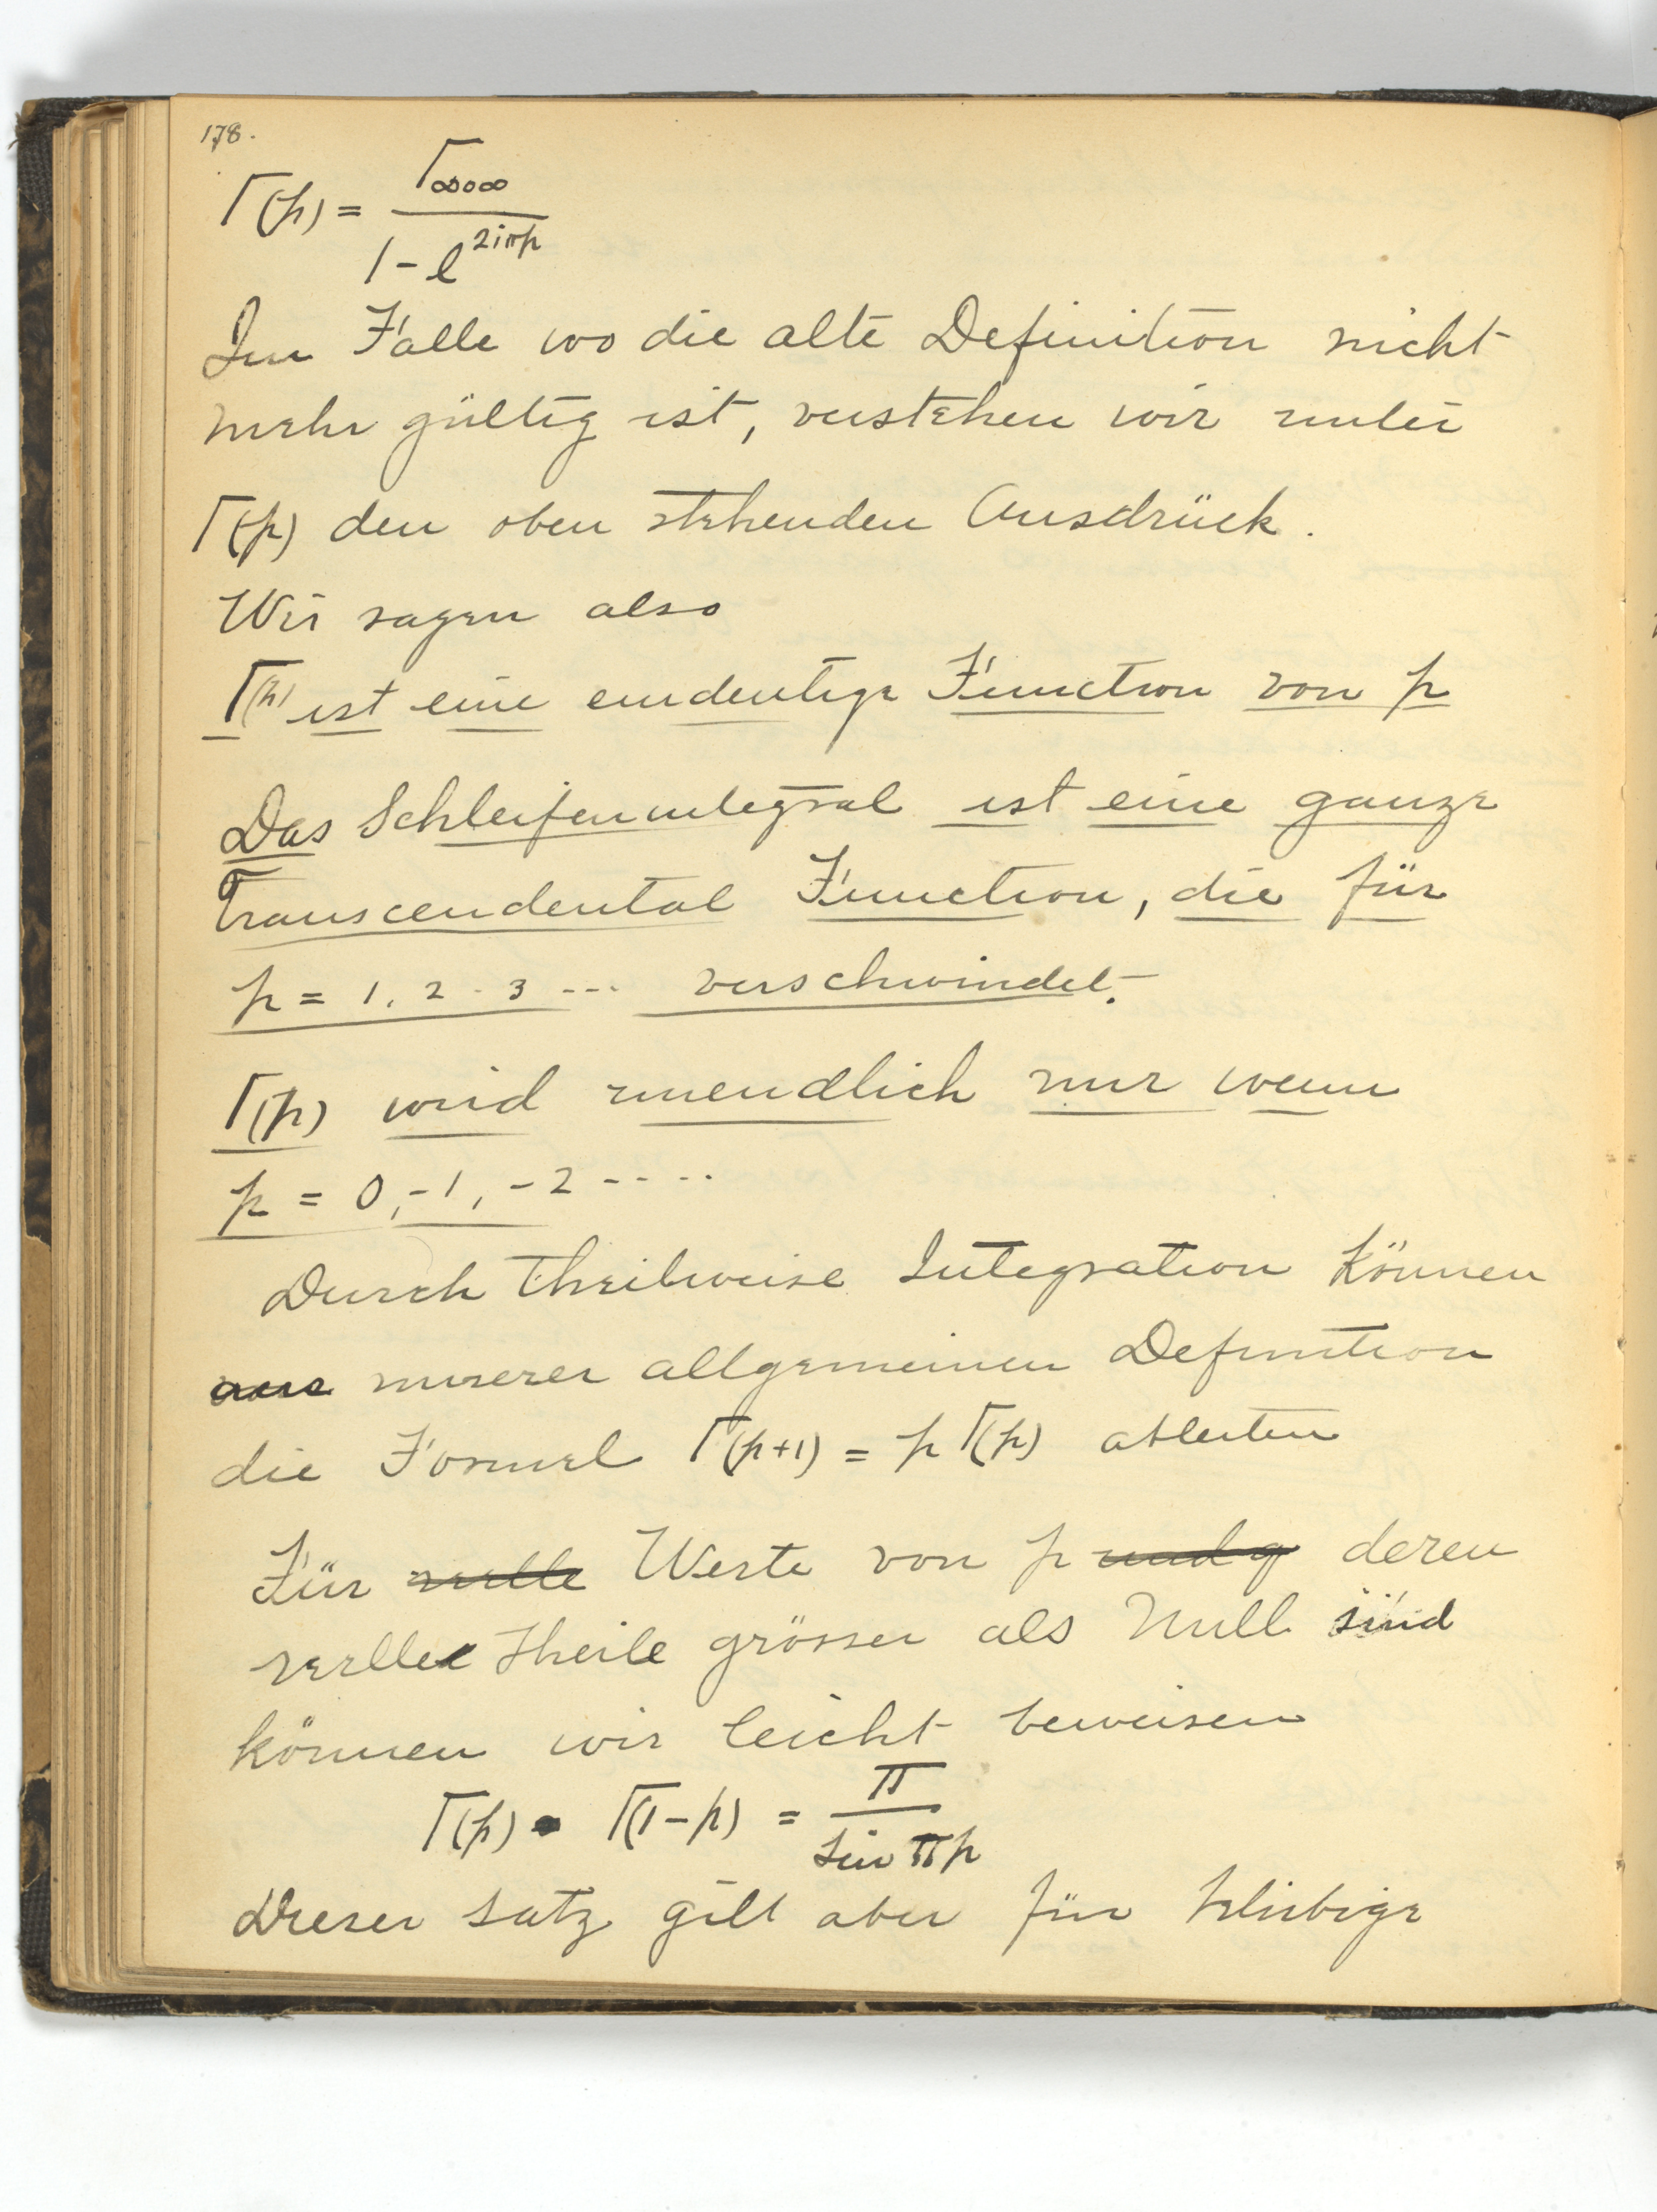 178.
Γ(p) = Γ∞0∞ / 1 - e^{2iπp}
Im Falle wo die alte Definition nicht
mehr gültig ist, verstehen wir unter
Γ(p) den oben stehenden Ausdrück.
Wir sagen also
Γ(p) ist eine eindeutige Function von p
Das Schleifenintegral ist eine ganze
Transcendental Function, die für
p = 1, 2 - 3 --- verschwindet.
Γ(p) wird unendlich nur wenn
p = 0, -1, -2 -----
Durch theilweise Integration können
aus unserer allgemeinen Definition
die Formel Γ(p+1) = p Γ(p) ableiten
Für reelle Werte von p und q deren
reelle Theile grösser als Null sind
können wir leicht beweisen
Γ(p) · Γ(1-p) = π / sin πp
Dieser Satz gilt aber für beliebige